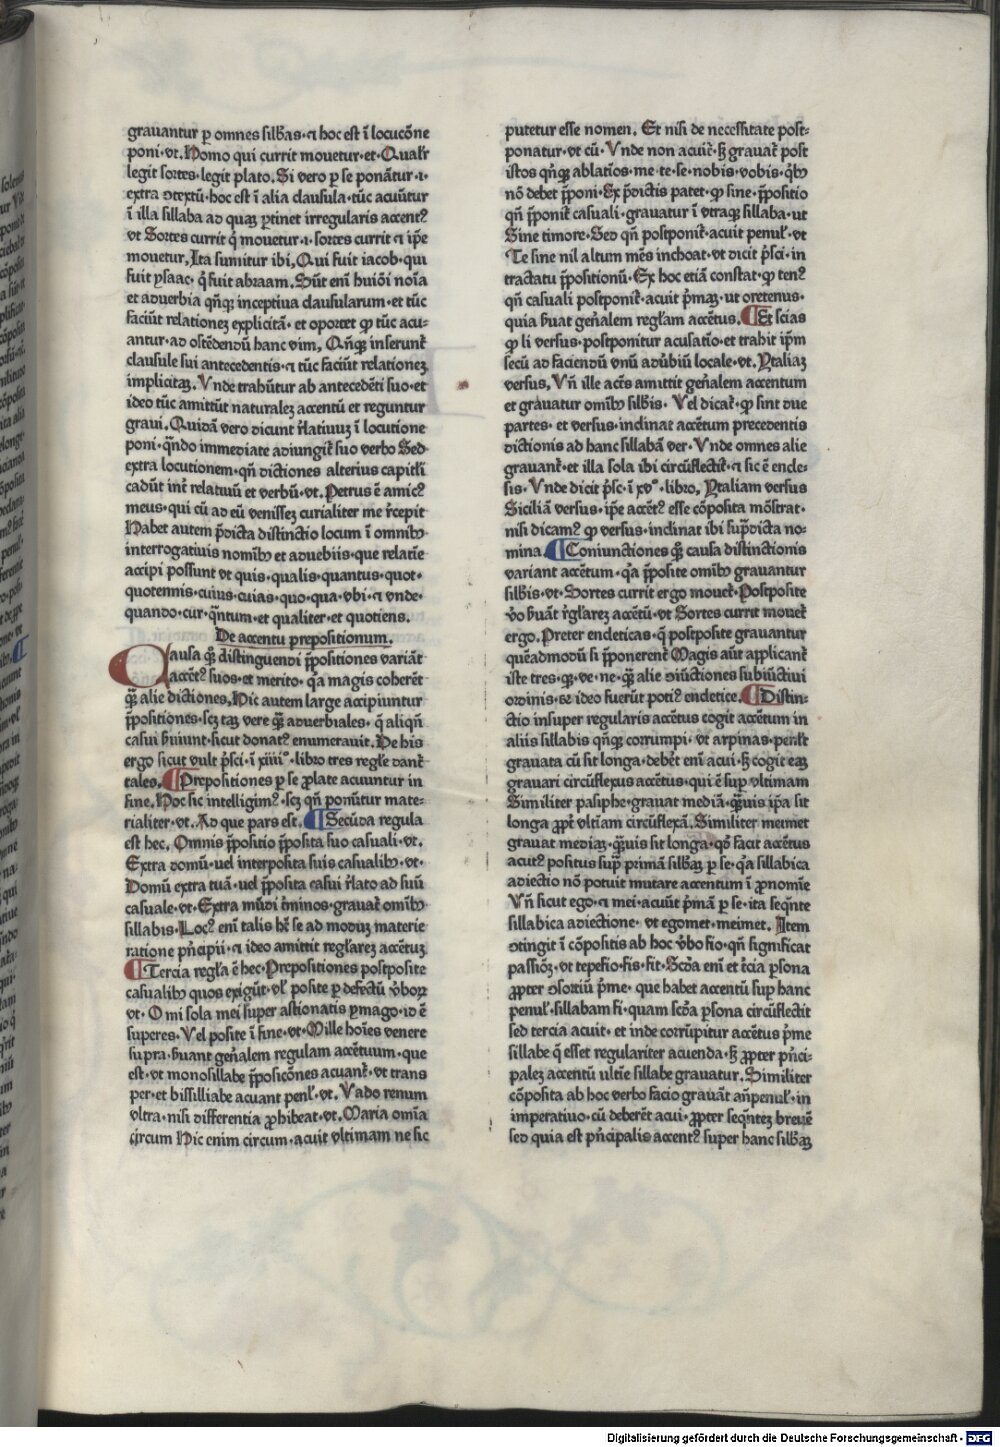 grauantur ꝑ omnes silb̃as·⁊ hoc est ĩ locucõne
poni·vt·Homo qui currit mouetur·et·Qual̃r
legit sortes·legit plato. Si vero ꝑ se ponãtur·i·
extra ↄtextũ·hoc est ĩ alia clausula·tũc acuũtur
ĩ illa sillaba ad quaꝫ ꝑtinet irregularis accentꝰ
vt Sortes currit q̃ mouetur·i·sortes currit ⁊ ip̃e
mouetur, Ita sumitur ibi, Qui fuit iacob·qui
fuit ysaac·q̃ fuit abraam. Sũt eni huiõi noĩa
et aduerbia qñqꝫ inceptiua clausularum·et tũc
faciũt relationeꝫ explicitã·et oportet ꝙ tũc acu-
antur·ad ostẽdendũ hanc vim, Qñqꝫ inserunt̃
clausule sui antecedentis·⁊ tũc faciũt relationeꝫ
implicitaꝫ. Vnde trahũtur ab antecedẽti suo·et
ideo tũc amittũt naturaleꝫ accentũ et reguntur
graui. Quidã vero dicunt r̃latiuuꝫ ĩ locutione
poni·qñdo immediate adiungit̃ suo verbo Sed
extra locutionem·qñ dictiones alterius capitl̃i
cadũt int̃ relatiuũ et verbũ·vt·Petrus ẽ amicꝰ
meus·qui cũ ad eũ venisseꝫ curialiter me r̃cepit
Habet autem p̃dicta distinctio locum ĩ omnibꝫ
interrogatiuis nomĩbꝫ et aduebiis·que relatĩe
accipi possunt vt quis·qualis·quantus·quot·
quotennis·cuius·cuias·quo·qua·vbi·⁊ vnde·
quando·cur·q̃ntum·et qualiter·et quotiens.
De accentu prepositionum.
Causa q̃ꝫ distinguendi p̃positiones variãt
accẽtꝰ suos·et merito·q̃a magis coherẽt
q̃ꝫ alie dictiones, Hic autem large accipiuntur
p̃positiones·scꝫ taꝫ vere q̃ꝫ aduerbiales·q̃ aliqñ
casui ẜuiunt·sicut donatꝰ enumerauit. De his
ergo sicut vult p̃sci·ĩ xiiii°·libro tres regl̃e dant̃
tales. ¶Prepositiones ꝑ se ꝓlate acuuntur in
fine. Hoc sic intelligimꝰ·scꝫ qñ ponũtur mate-
rialiter·vt·Ad que pars est. ¶Secũda regula
est hec. Omnis p̃positio p̃posita suo casuali·vt·
Extra domũ·uel interposita suis casualibꝫ·vt·
Domũ extra tuã·uel p̃posita casui r̃lato ad suũ
casuale·vt·Extra mũdi t̃minos·grauat̃ omĩbꝫ
sillabis·Locꝰ eni talis hꝫ se ad modũ materie
ratione pñcipii·⁊ ideo amittit regl̃areꝫ accẽtuꝫ
¶Tercia regl̃a ẽ hec·Prepositiones postposite
casualibꝫ quos exigũt·vl̃ posite ꝑ defectũ v̓boꝝ
vt·O mi sola mei super astionatis ꝑmago·id ẽ
superes·Vel posite ĩ fine·vt·Mille hoĩes venere
supra·ẜuant geñalem regulam accẽtuum·que
est·vt monosillabe p̃posicõnes acuant̃·vt trans
per·et bissilliabe acuant penl̃·vt·Vado renum
vltra·nisi differentia ꝓhibeat·vt·Maria omĩa
circum Hic enim circum·acuit vltimam ne sic
putetur esse nomen. Et nisi de necessitate post-
ponatur·vt cũ·Vnde non acuit̃·sꝫ grauat̃ post
istos qñqꝫ ablatios·me·te·se·nobis·vobis·q̃bꝫ
nõ debet p̃poni·Ex p̃dictis patet·ꝙ sine·p̃positio
qñ p̃ponit̃ casuali·grauatur ĩ vtraqꝫ sillaba·ut
Sine timore·Sed qñ postponit̃·acuit penul̃·vt
Te sine nil altum mẽs inchoat·vt dicit p̃sci·in
tractatu p̃positionũ·Ex hoc etiã constat·ꝙ tenꝰ
qñ casuali postponit̃·acuit p̃maꝫ·ut oretenus·
quia ẜuat geñalem regl̃am accẽtus. ¶Et scias
ꝙ li versus·postponitur acusatio·et trahit ip̃m
secũ ad faciendũ vnũ adũbiũ locale·vt·Ytaliaꝫ
versus, Vñ ille actẽs amittit geñalem accentum
et grauatur omĩbꝫ silb̃is·Vel dicat̃·ꝙ sint due
partes·et versus·inclinat accẽtum precedentis
dictionis ad hanc sillabã ver·Vnde omnes alie
grauant̃·et illa sola ibi circũflectit̃·⁊ sic ẽ encle-
sis·Vnde dicit p̃sc·ĩ xv°·libro, Ytaliam versus
Siciliã versus·ip̃e accẽtꝰ esse cõposita mõstrat·
nisi dicamꝰ ꝙ versus·inclinat ibi sup̃dicta no-
mina. ¶Coniunctiones q̃ꝫ causa distinctionis
variant accẽtum·q̃a p̃posite omĩbꝫ grauantur
silb̃is·vt·Sortes currit ergo mouet̃·Postposite
v̓o ẜuãt r̃gl̃areꝫ accẽtũ·vt Sortes currit mouet̃
ergo. Preter encleticas·q̃ postposite grauantur
quẽadmodũ si p̃ponerent̃ Magis aũt applicant̃
iste tres·qꝫ·ve·ne·q̃ꝫ alie diũctiones subiũctiui
ordinis·⁊ ideo fuerũt potiꝰ encletice. ¶Distin-
ctio insuper regularis accẽtus cogit accẽtum in
aliis sillabis qñqꝫ corrumpi·vt arpinas·penl̃t
grauata cũ sit longa·debet̃ eni acui·sꝫ cogit eaꝫ
grauari circũflexus accẽtus·qui ẽ suꝑ vltimam
Similiter pasiphe·grauat mediã·q̃ꝫuis ip̃a sit
longa ꝓpt̃ vltĩam circũflexã. Similiter meimet
grauat mediaꝫ·q̃ꝫuis sit longa·qð facit accẽtus
acutꝰ positus suꝑ primã silb̃aꝫ ꝑ se·q̃a sillabica
adiectio nõ potuit mutare accentum ĩ ꝓnomĩe
Vñ sicut ego·⁊ mei·acuit p̃mã ꝑ se·ita seq̃nte
sillabica adiectione·vt egomet·meimet. Item
ↄtingit ĩ cõpositis ab hoc v̓bo fio·qñ significat
passioꝫ·vt tepefio·fis·fit·Scd̃a eni et t̃cia ꝑsona
ꝓpter ↄsortiũ p̃me·que habet accentũ suꝑ hanc
penul̃·sillabam fi·quam scd̃a ꝑsona circũflectit
sed tercia acuit·et inde corrũpitur accẽtus p̃me
sillabe q̃ esset regulariter acuenda·sꝫ ꝓpter pñci-
paleꝫ accentũ ultĩe sillabe grauatur. Similiter
cõposita ab hoc verbo facio grauãt añpenul̃·in
imperatiuo·cũ deberẽt acui·ꝓpter seq̃nteꝫ breuẽ
sed quia est pñcipalis accentꝰ super hanc silb̃aꝫ
Digitalisierung gefördert durch die Deutsche Forschungsgemeinschaft - DFG